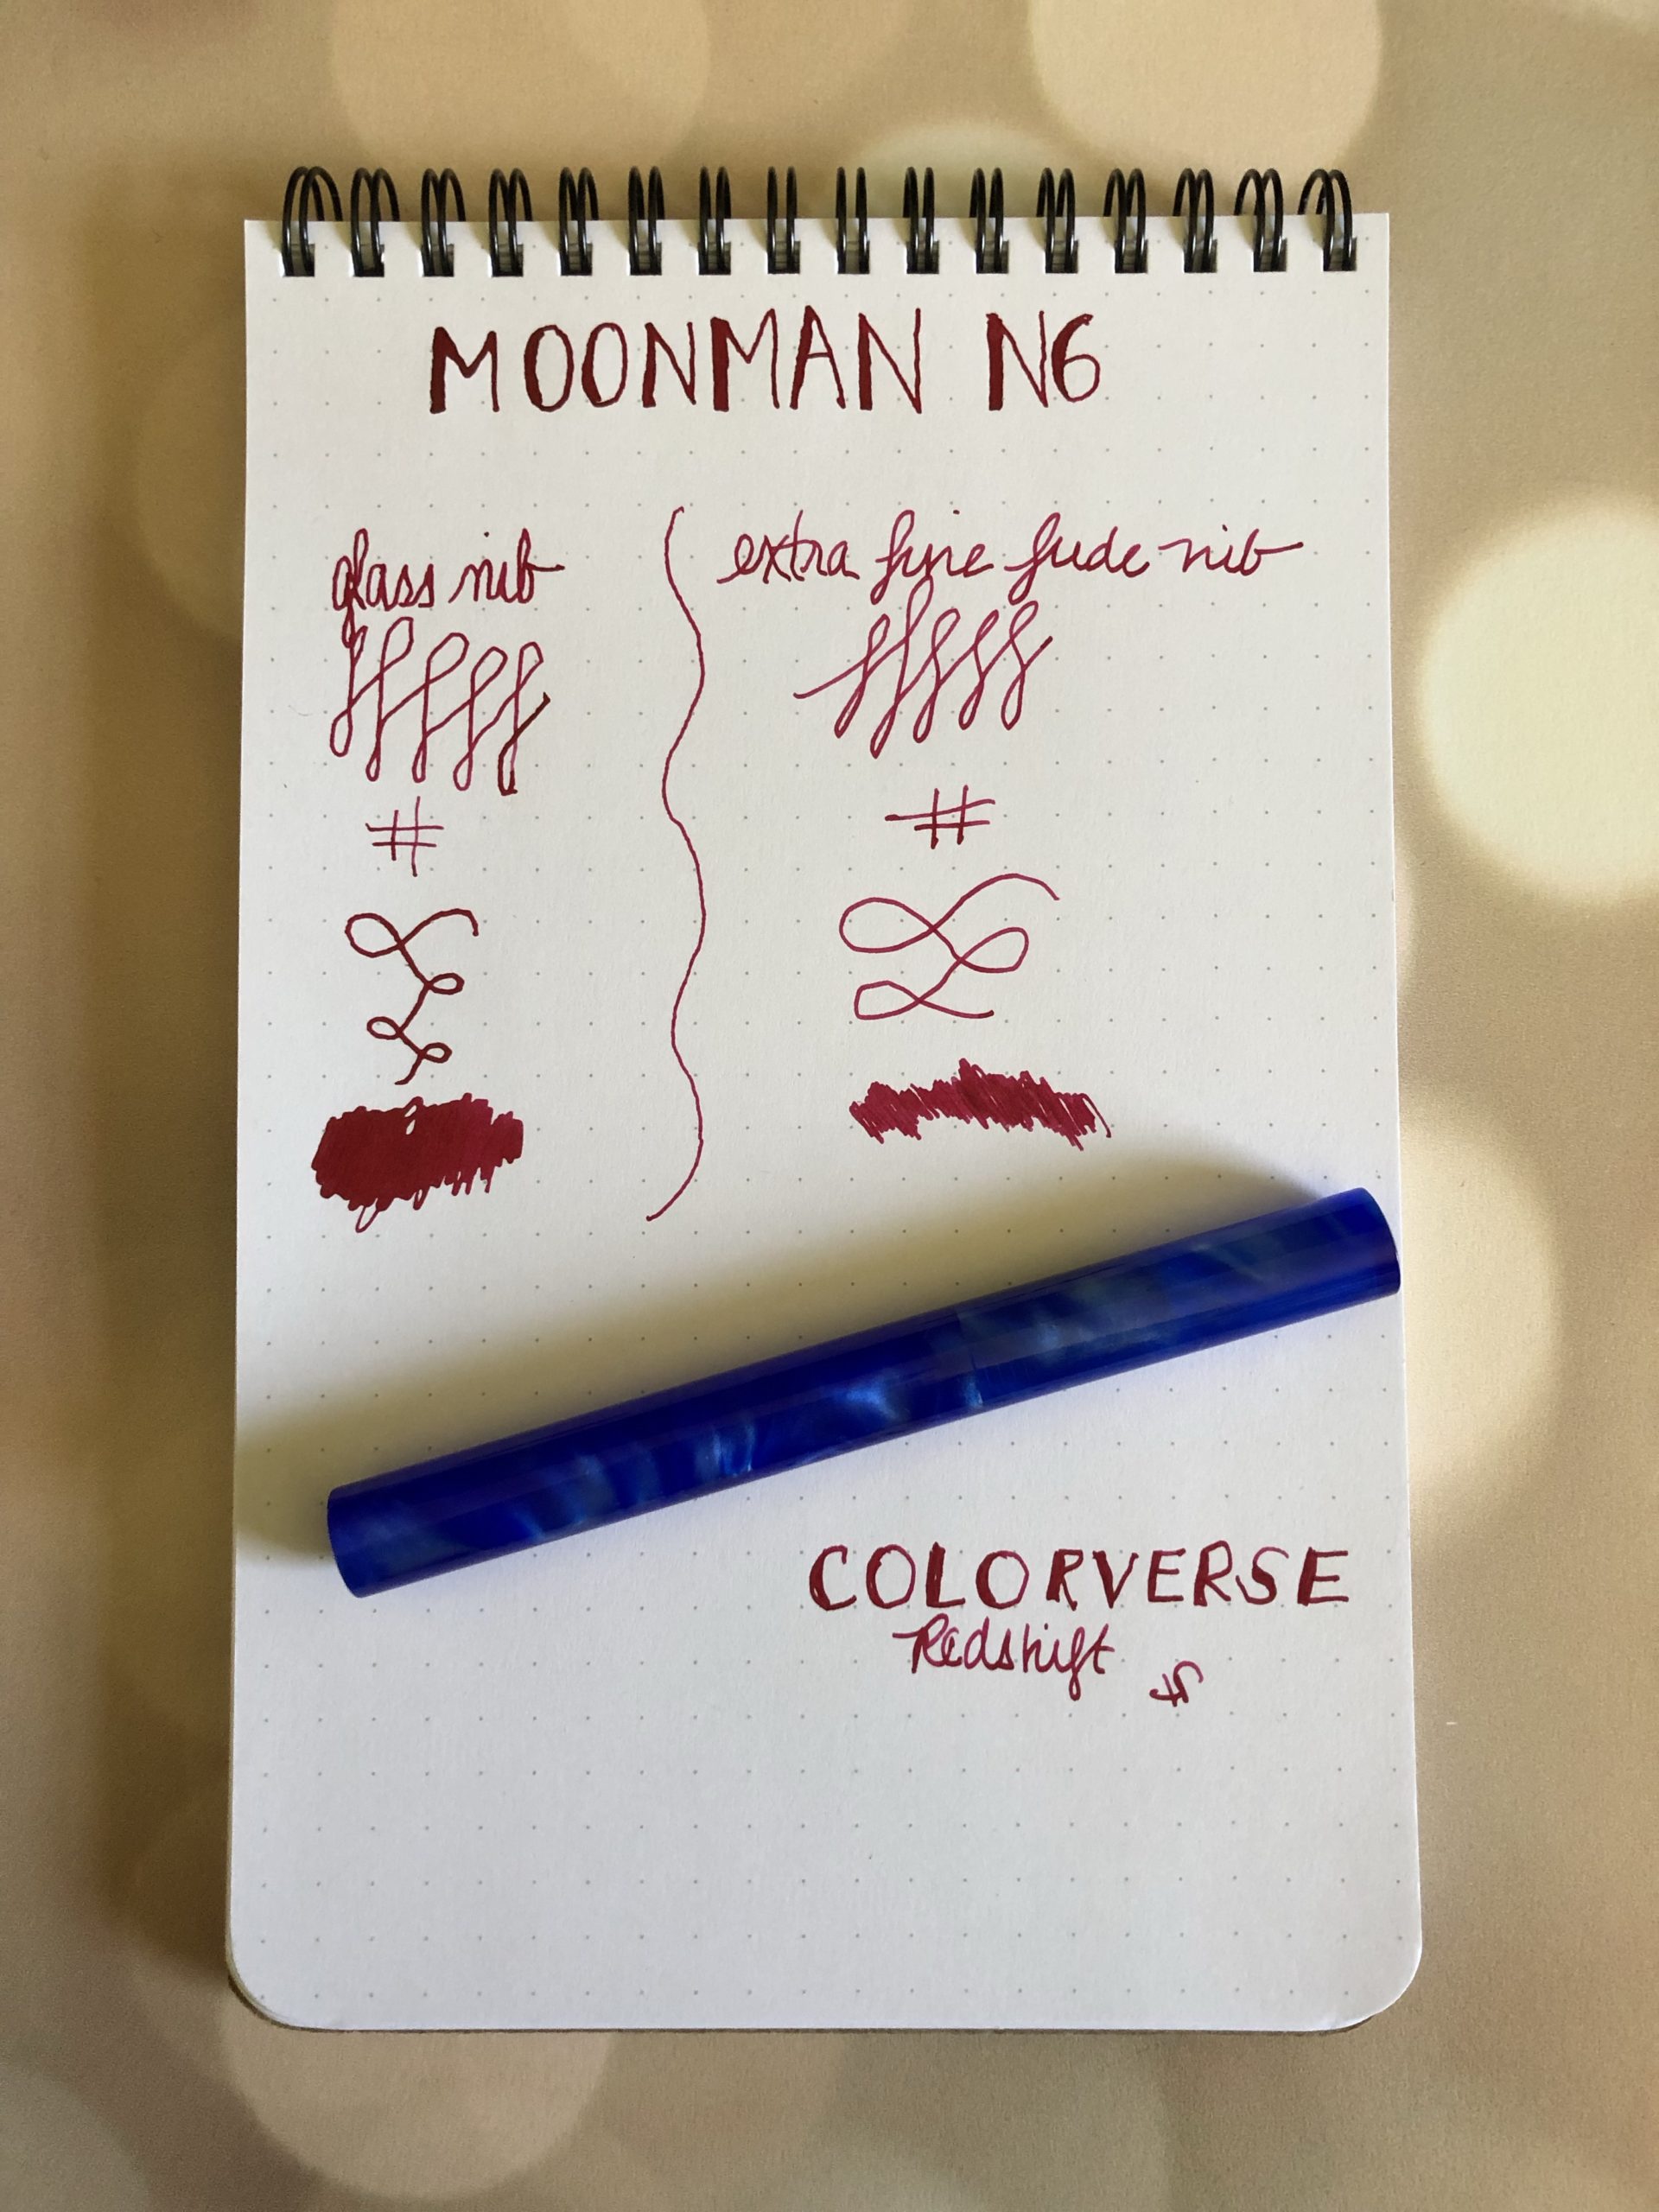 MOONMAN N6
glass nib
extra fine fude nib
#
#
COLORVERSE
Redshift